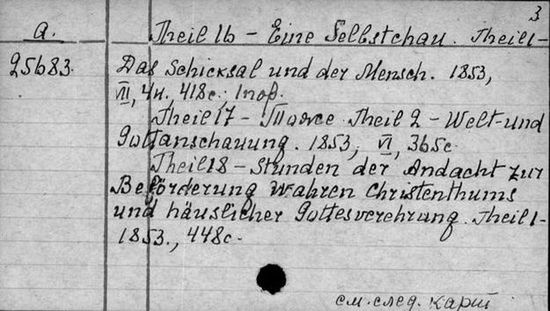 3
a. Theil 16 - Eine Selbstchau. Theil 1-
25683. Das Schicksal und der Mensch. 1853,
VII, 4н. 418с.
Theil 17 - Тоже Theil 2 - Welt-und
Gottanschauung. 1853, VI, 365с
Theil 18 - Stunden der Andacht zur
Beförderung wahren Christenthums
und häuslicher Gottesverehrung. Theil 1-
1853., 448с.
см. след. карт